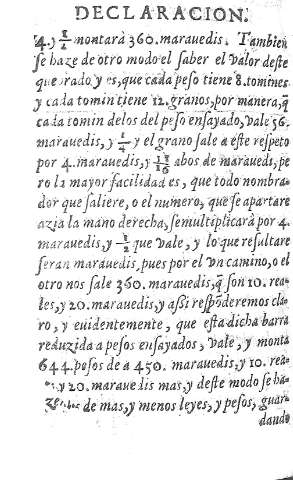 DECLARACION.
4. y 1/2 montarà 360. marauedis. Tambien
se haze de otro modo el saber el valor deste
quebrado y es, que cada peso tiene 8. tomines
y cada tomin tiene 12. granos, por manera, q̃
cada tomin delos del peso ensayado, vale 56.
marauedis, y 1/4 y el grano sale a este respeto
por 4. marauedis, y 11/16 abos de marauedi, pe
ro la mayor facilidad es, que todo nombra-
dor que saliere, o el numero, que se apartare
azia la mano derecha, se multiplicarà por 4.
marauedis, y 1/2 que vale, y lo que resultare
seran marauedis, pues por el vn camino, o el
otro nos sale 360. marauedis, q̃ son 10. rea-
les, y 20. marauedis, y assi respõderemos cla-
ro, y euidentemente, que esta dicha barra
reduzida a pesos ensayados, vale, y monta
644. pesos de a 450. marauedis, y 10. rea-
y 20. marauedis mas, y deste modo se ha-
de mas, y menos leyes, y pesos, guar-
dando